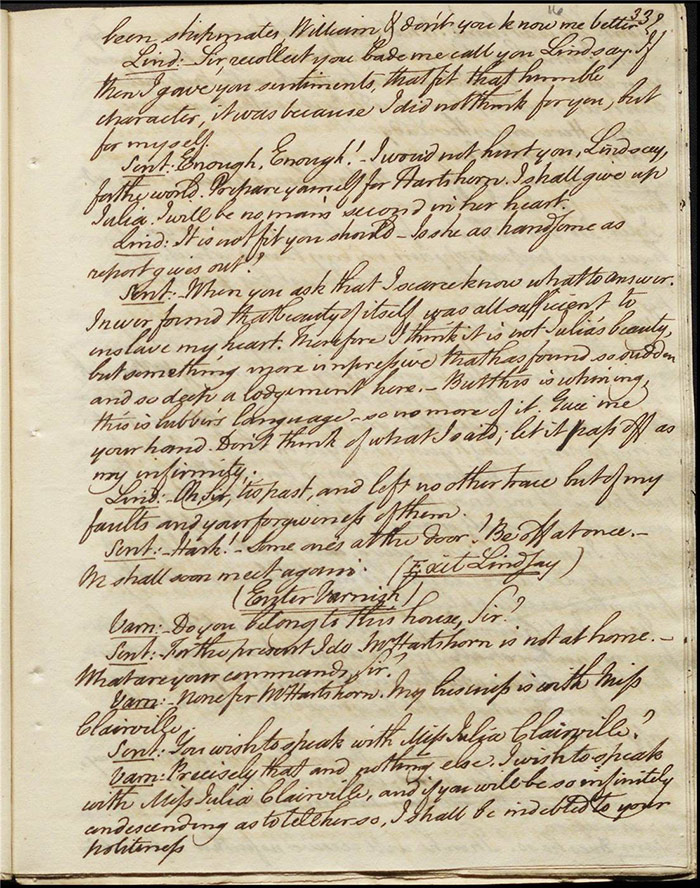 16
339
been shipmates, William & don't you know me better
Lind: Sir, recollect you bade me call you Lindsay. If
then I gave you sentiments, that fit that humble
character, it was because I did not think for you, but
for myself.
Sent: Enough, Enough! - I would not hurt you, Lindsay,
for the world. Prepare yourself for Hartshorn. I shall give up
Julia. I will be no man's second in her heart.
Lind: It is not fit you should - Is she as handsome as
report gives out?
Sent: When you ask that I scarce know what to answer.
I never found that beauty of itself was all sufficient to
enslave my heart. Therefore I think it is not Julia's beauty,
but something more impressive that has found so sudden
and so deep a lodgement here. - But this is whining,
this is lubber's language - so no more of it. Give me
your hand. Don't think of what I said; let it pass off as
my infirmity.
Lind: - Oh Sir, tis past, and left no other trace but of my
faults and your forgiveness of them.
Sent: - Hark! - Some one's at the door! Be off at once. -
We shall soon meet again. (Exit Lindsay)
(Enter Varnish)
Varn: - Do you belong to this house, Sir?
Sent: - For the present I do. Mr Hartshorn is not at home. -
What are your commands, Sir?
Varn: - None for Mr Hartshorn. My business is with Miss
Clairville.
Sent: You wish to speak with Miss Julia Clairville?
Varn: Precisely that and nothing else. I wish to speak
with Miss Julia Clairville, and if you will be so infinitely
condescending as to tell her so, I shall be indebted to your
politeness